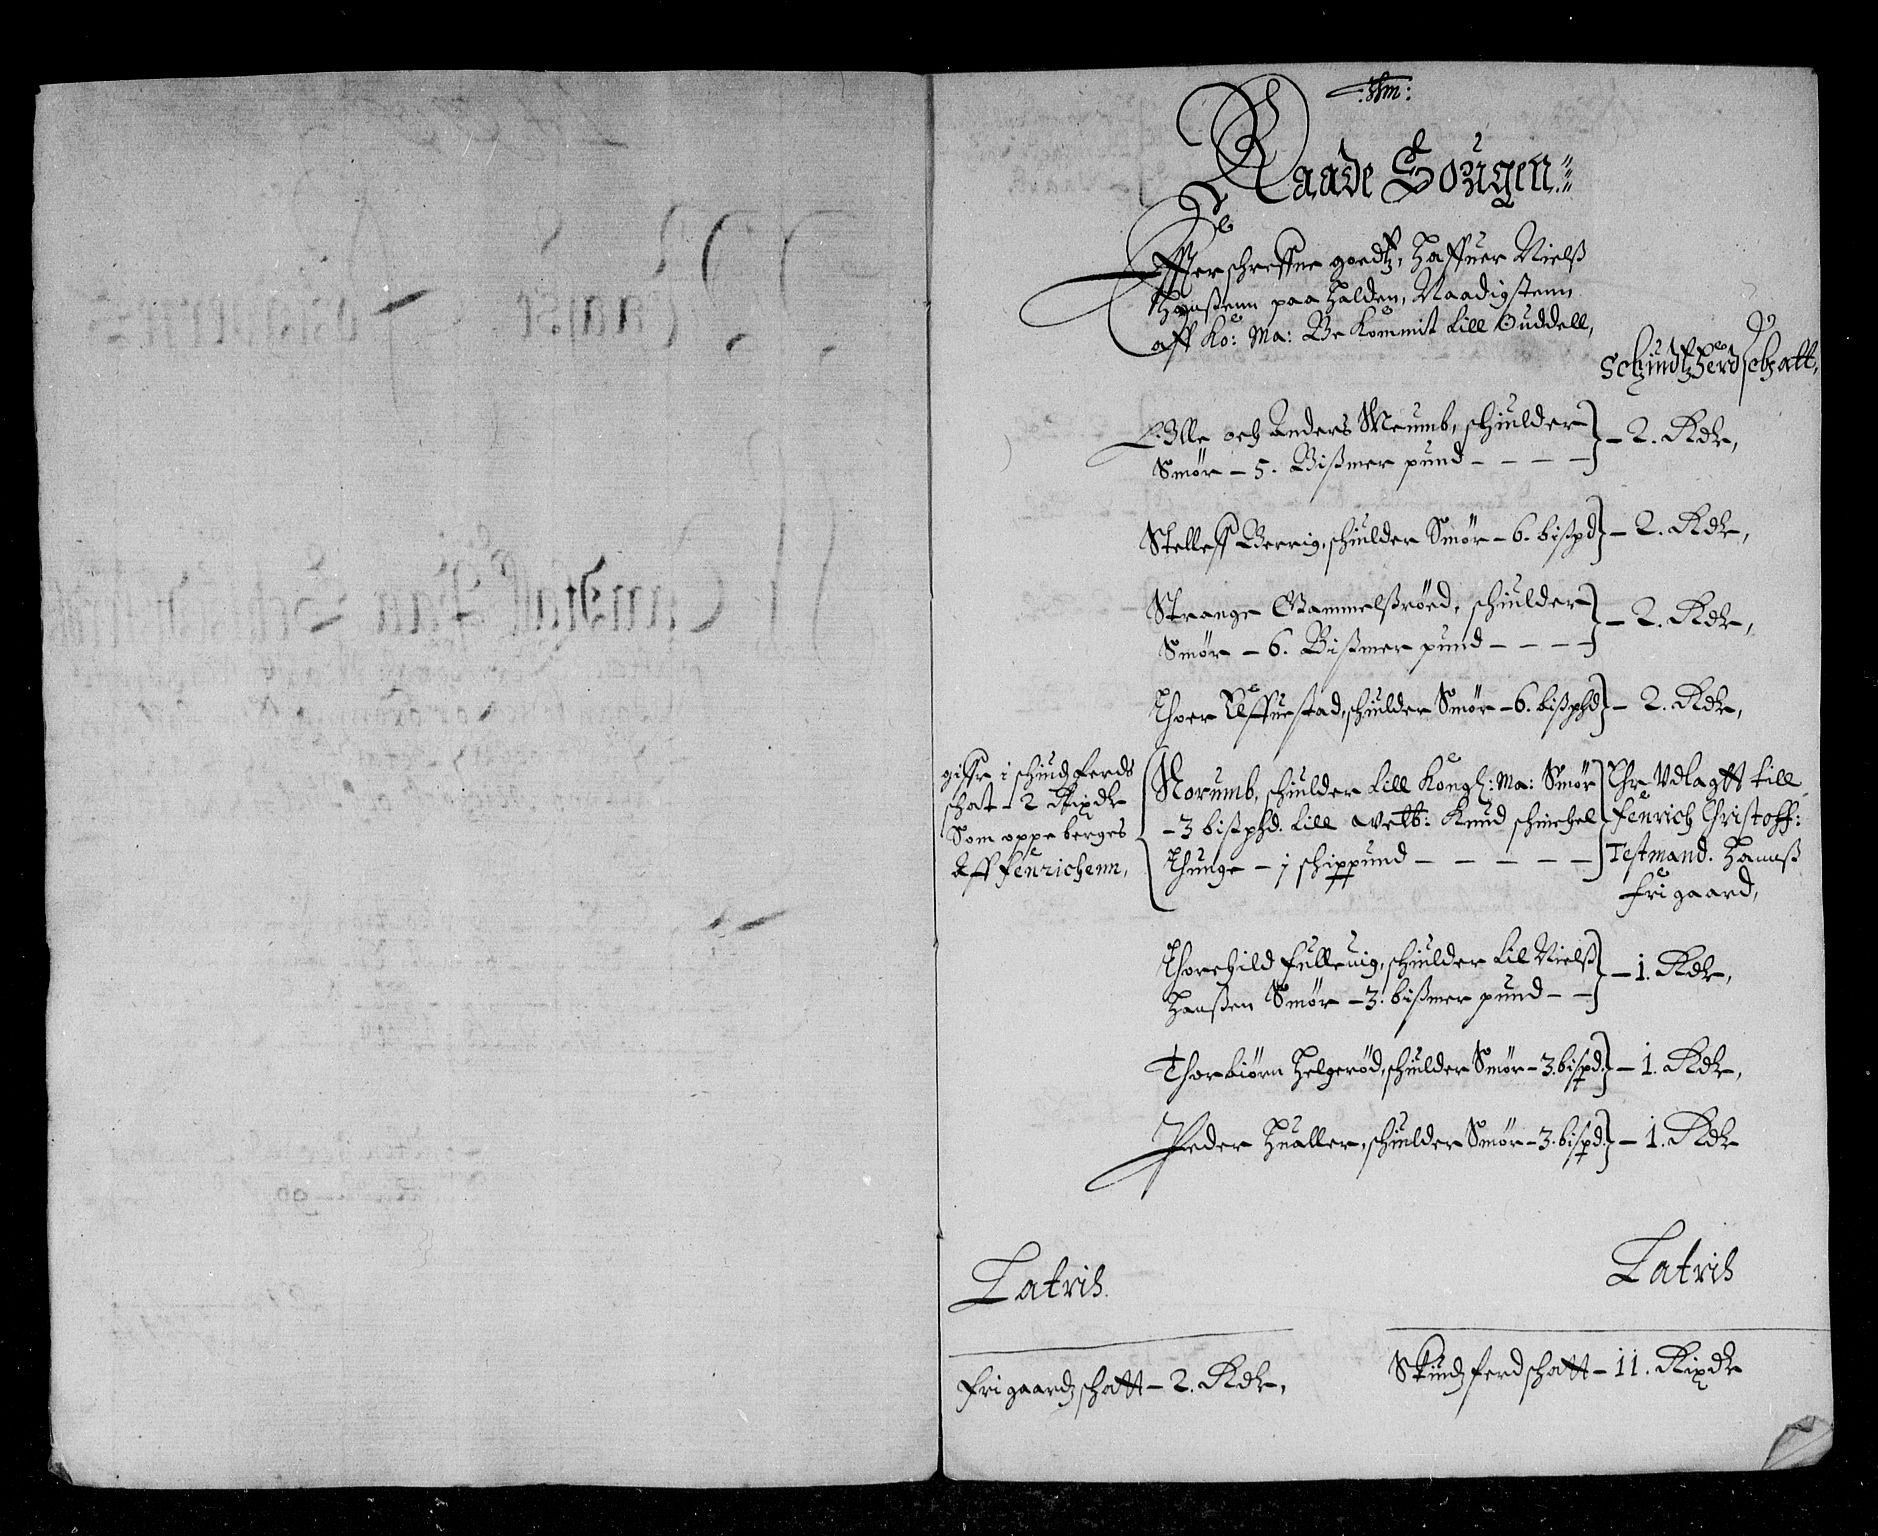 Raade Sougen
Effterschreffne goedtz, Haffuer Nielß
Hanßenn paa Halden, Naadigstenn
aff Ko: Ma: Be Kommit till Ouddell,
Schiudtzferd schatt,
Olle och Anders Meumb, schiulder
Smør - 5. Bißmer pund - - - - } - 2. Rdr,
Stelleff Berrig, schiulder Smør - 6. bißpd } - 2. Rdr,
Strange Gammelßröed, schiulder
Smør - 6. Bißmer pund - - - } - 2. Rdr,
Thoer Elffuestad, schiulder Smør - 6. bißphd } - 2. Rdr,
giffr i schiudtz ferds
schat - 2 Rixdr
Som oppe berges
Aff fenrichenn,
Norumb, schiulder till Kongl: Ma: Smør
- 3 bißphd. till Knud
Thunge - j schippund - - - - -
Ehr Vdlagtt till
fenrich Christoff:
Testmand. Hannß
frigaard,
Thorchild fulleuig, schiulder til Nielß
Hanßen Smør - 3. bißmer pund - - } - 1. Rdr,
Thorbiørn Helgerød, schiulder Smør - 3. bißpd. } - 1. Rdr,
Peder Hualler, schiulder Smør - 3. bißpd. } - 1. Rdr
Latris.
Latris
frigaardtz schatt - 2. Rdr,
Skiudtz ferd schatt - 11. Rixdr